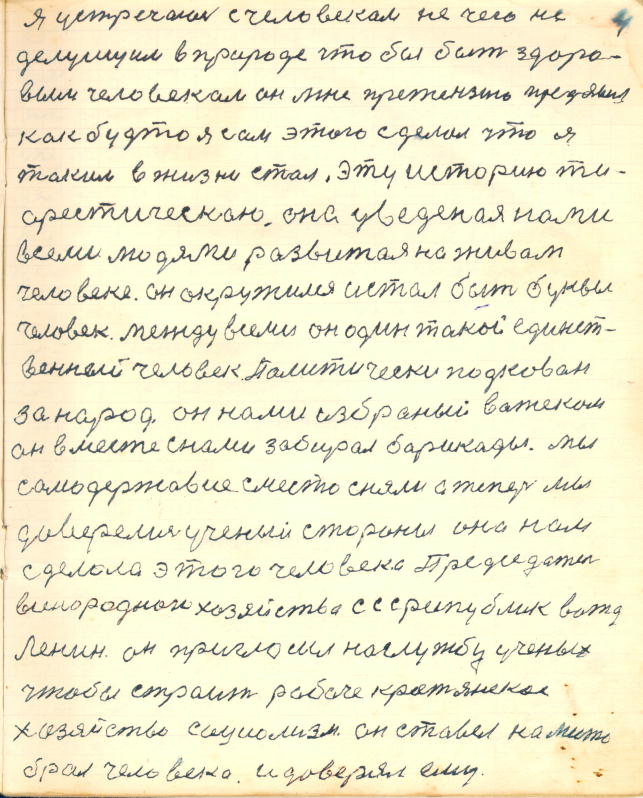 4
я устречаюсь с человекам не чего не
делующим в природе что бы быть здоро-
вым человекам он мне претензию предявил
как будто я сам этого сделал что я
таким в жизни стал. Эту историю ти-
арестическаю. она уведеная нами
всеми людями развитая на живам
человеке. он окружился и стал быть буквы
человек. между всеми он один такой единст-
венный человек. Палитически подкован
за народ. он нами избраный
он вместе с нами забирал барикады. мы
самодержавие сместо сняли а тепер мы
доверелися ученый стороны она нам
сделала этого человека Председател
хозяйства ссср република вожд
Ленин. он пригласил на службу ученых
чтобы строить рабоче крестянское
хозяйство социолизм. он ставел на
брал человека. и доверял ему.